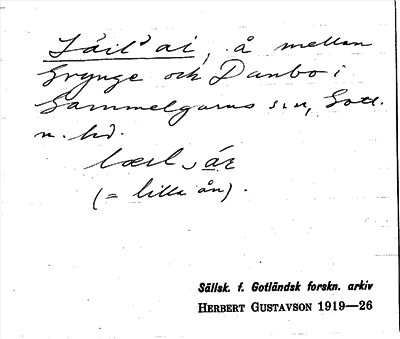 Láil' ai, å mellan
Grynge och Danbo i
Gammelgarns s:n, Gotl.
n. hd.
lœil, ár
(= lilla ån).
Sällsk. f. Gotländsk forskn. arkiv
HERBERT GUSTAVSON 1919—26